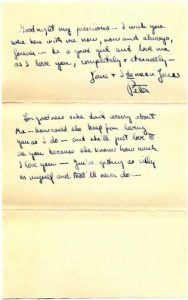 Goodnight my precious - I wish you
were here with me now, now and always,
forever - be a good girl and love me
as I love you, completely + eternally -
Yours +
Peter
For goodness sake don't worry about
me - how could she keep from loving
you as I do - and she'll just love to
see you because she knows how much
I love you - You're getting as silly
as myself and that'll never do -